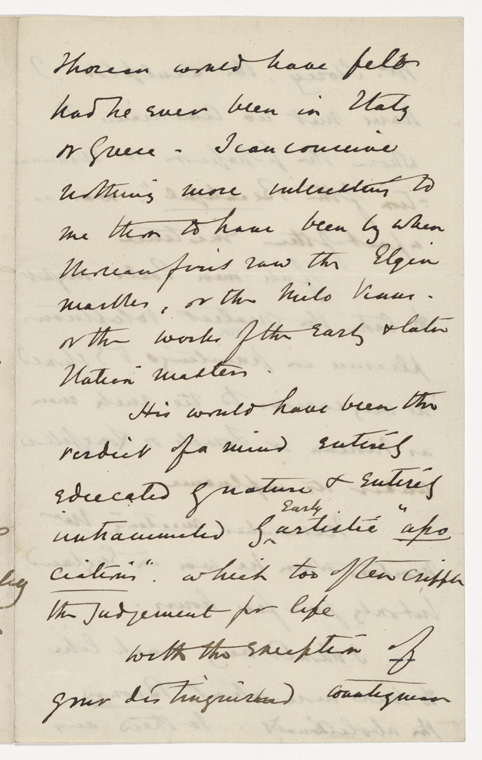 Thoreau would have felt
had he ever been in Italy
or Greece - I can conceive
nothing more interesting to
me than to have been by when
Thoreau first saw the Elgin
marbles, or the Milo Venus -
or the works of the Early & later
Italian masters.
His would have been the
verdict of a mind entirely
educated by nature & entirely
untrammeled by Early artistic "asso
ciations". which too often cripple
the judgement for life
with the exception of
your distinguished countryman